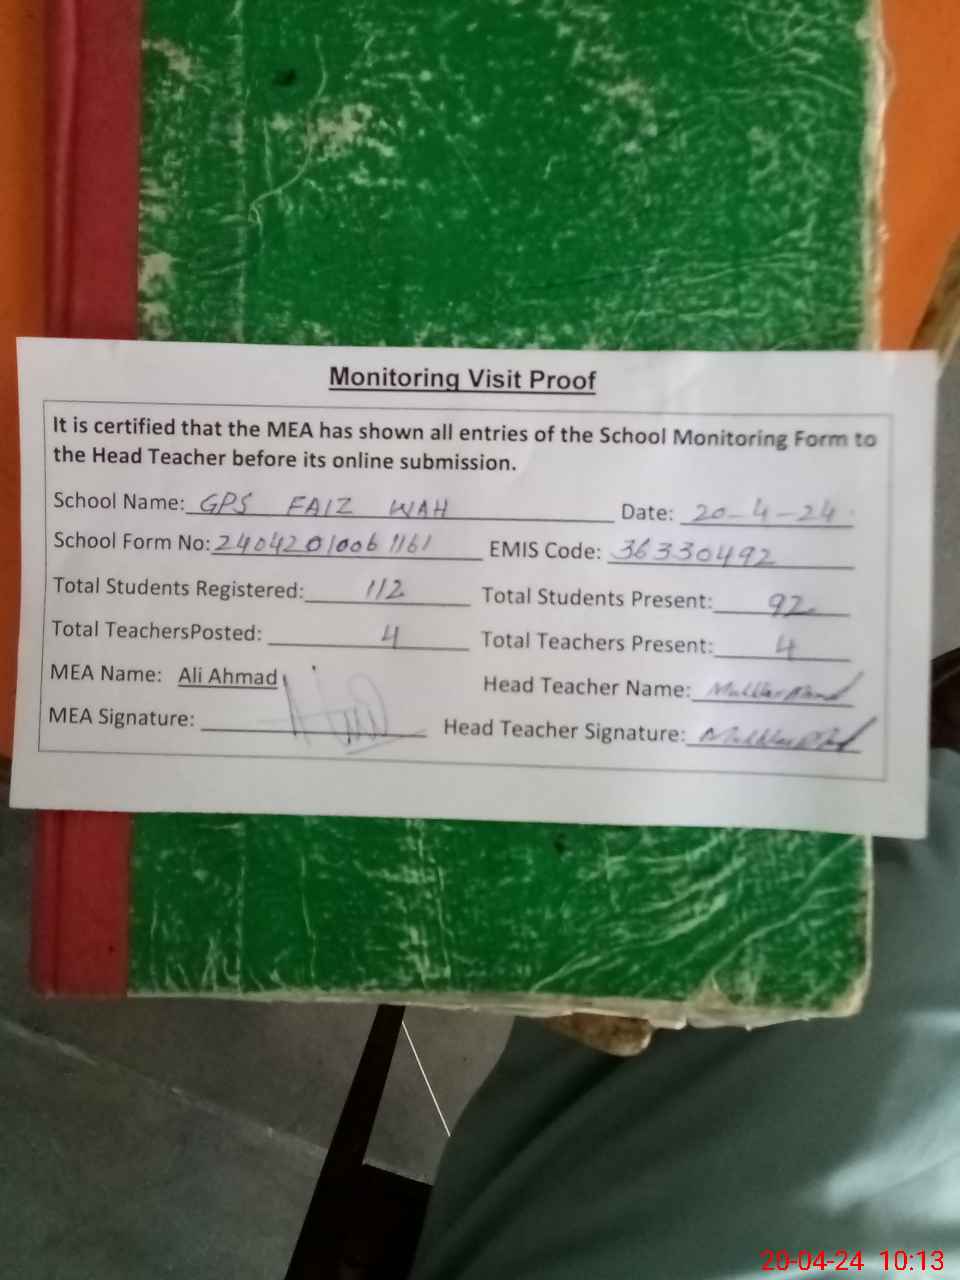 Monitoring Visit Proof
It is certified that the MEA has shown all entries of the School Monitoring Form to
the Head Teacher before its online submission.
School Name: GPS FAIZ WAH Date: 20-4-24
School Form No: 24042010061161 EMIS Code: 36330492
Total Students Registered: 112 Total Students Present: 92
Total TeachersPosted: 4 Total Teachers Present: 4
MEA Name: Ali Ahmad Head Teacher Name:
MEA Signature: Head Teacher Signature:
20-04-24 10:13